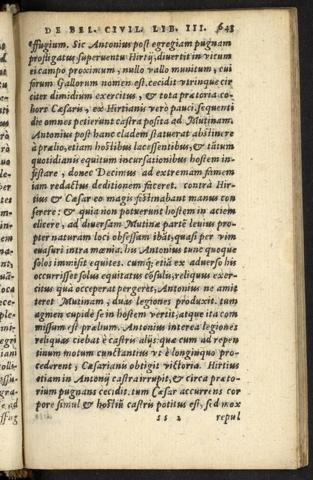 DE BEL. CIVIL. LIB. III. 643
effugium. Sic Antonius post egregiam pugnam
profligatus superuentu Hirtij, diuertit in vicum
ei campo proximum, nullo vallo munitum, cui
forum Gallorum nomen est. cecidit vtrinque cir
citer dimidium exercitus, & tota prætoria co-
hort Cæsaris, ex Hirtianis verò pauci. sequenti
die omnes petierunt castra posita ad Mutinam.
Antonius post hanc cladem statuerat abstinere
à prælio, etiam hostibus lacessentibus, & tãtum
quotidianis equitum incursationibus hostem in-
festare, donec Decimus ad extremam famem
iam redactus deditionem faceret. contrà Hir-
tius & Cæsar eo magis festinabant manus con
serere: & quia non potuerunt hostem in aciem
elicere, ad diuersam Mutinæ partē leuius pro-
pter naturam loci obsessam ibāt, quasi per vim
euasuri intra mœnia. his Antonius tunc quoque
solos immisit equites. cumq; etiā ex aduerso his
occurrisset solus equitatus cōsulū, reliquus exer-
citus quà occeperat pergeret, Antonius ne amit
teret Mutinam, duas legiones produxit. tum
agmen cupidè se in hostem vertit, atque ita com
missum est prælium. Antonius interea legiones
reliquas ciebat è castris alijs: quæ cum ad repen
tinum motum cunctantius vt è longinquo pro-
cederent, Cæsarianis obtigit victoria. Hirtius
etiam in Antonij castra irrupit, & circa præto-
rium pugnans cecidit. tum Cæsar accurrens cor
pore simul & hostiū castris potitus est, sed mox
ss 2 repul